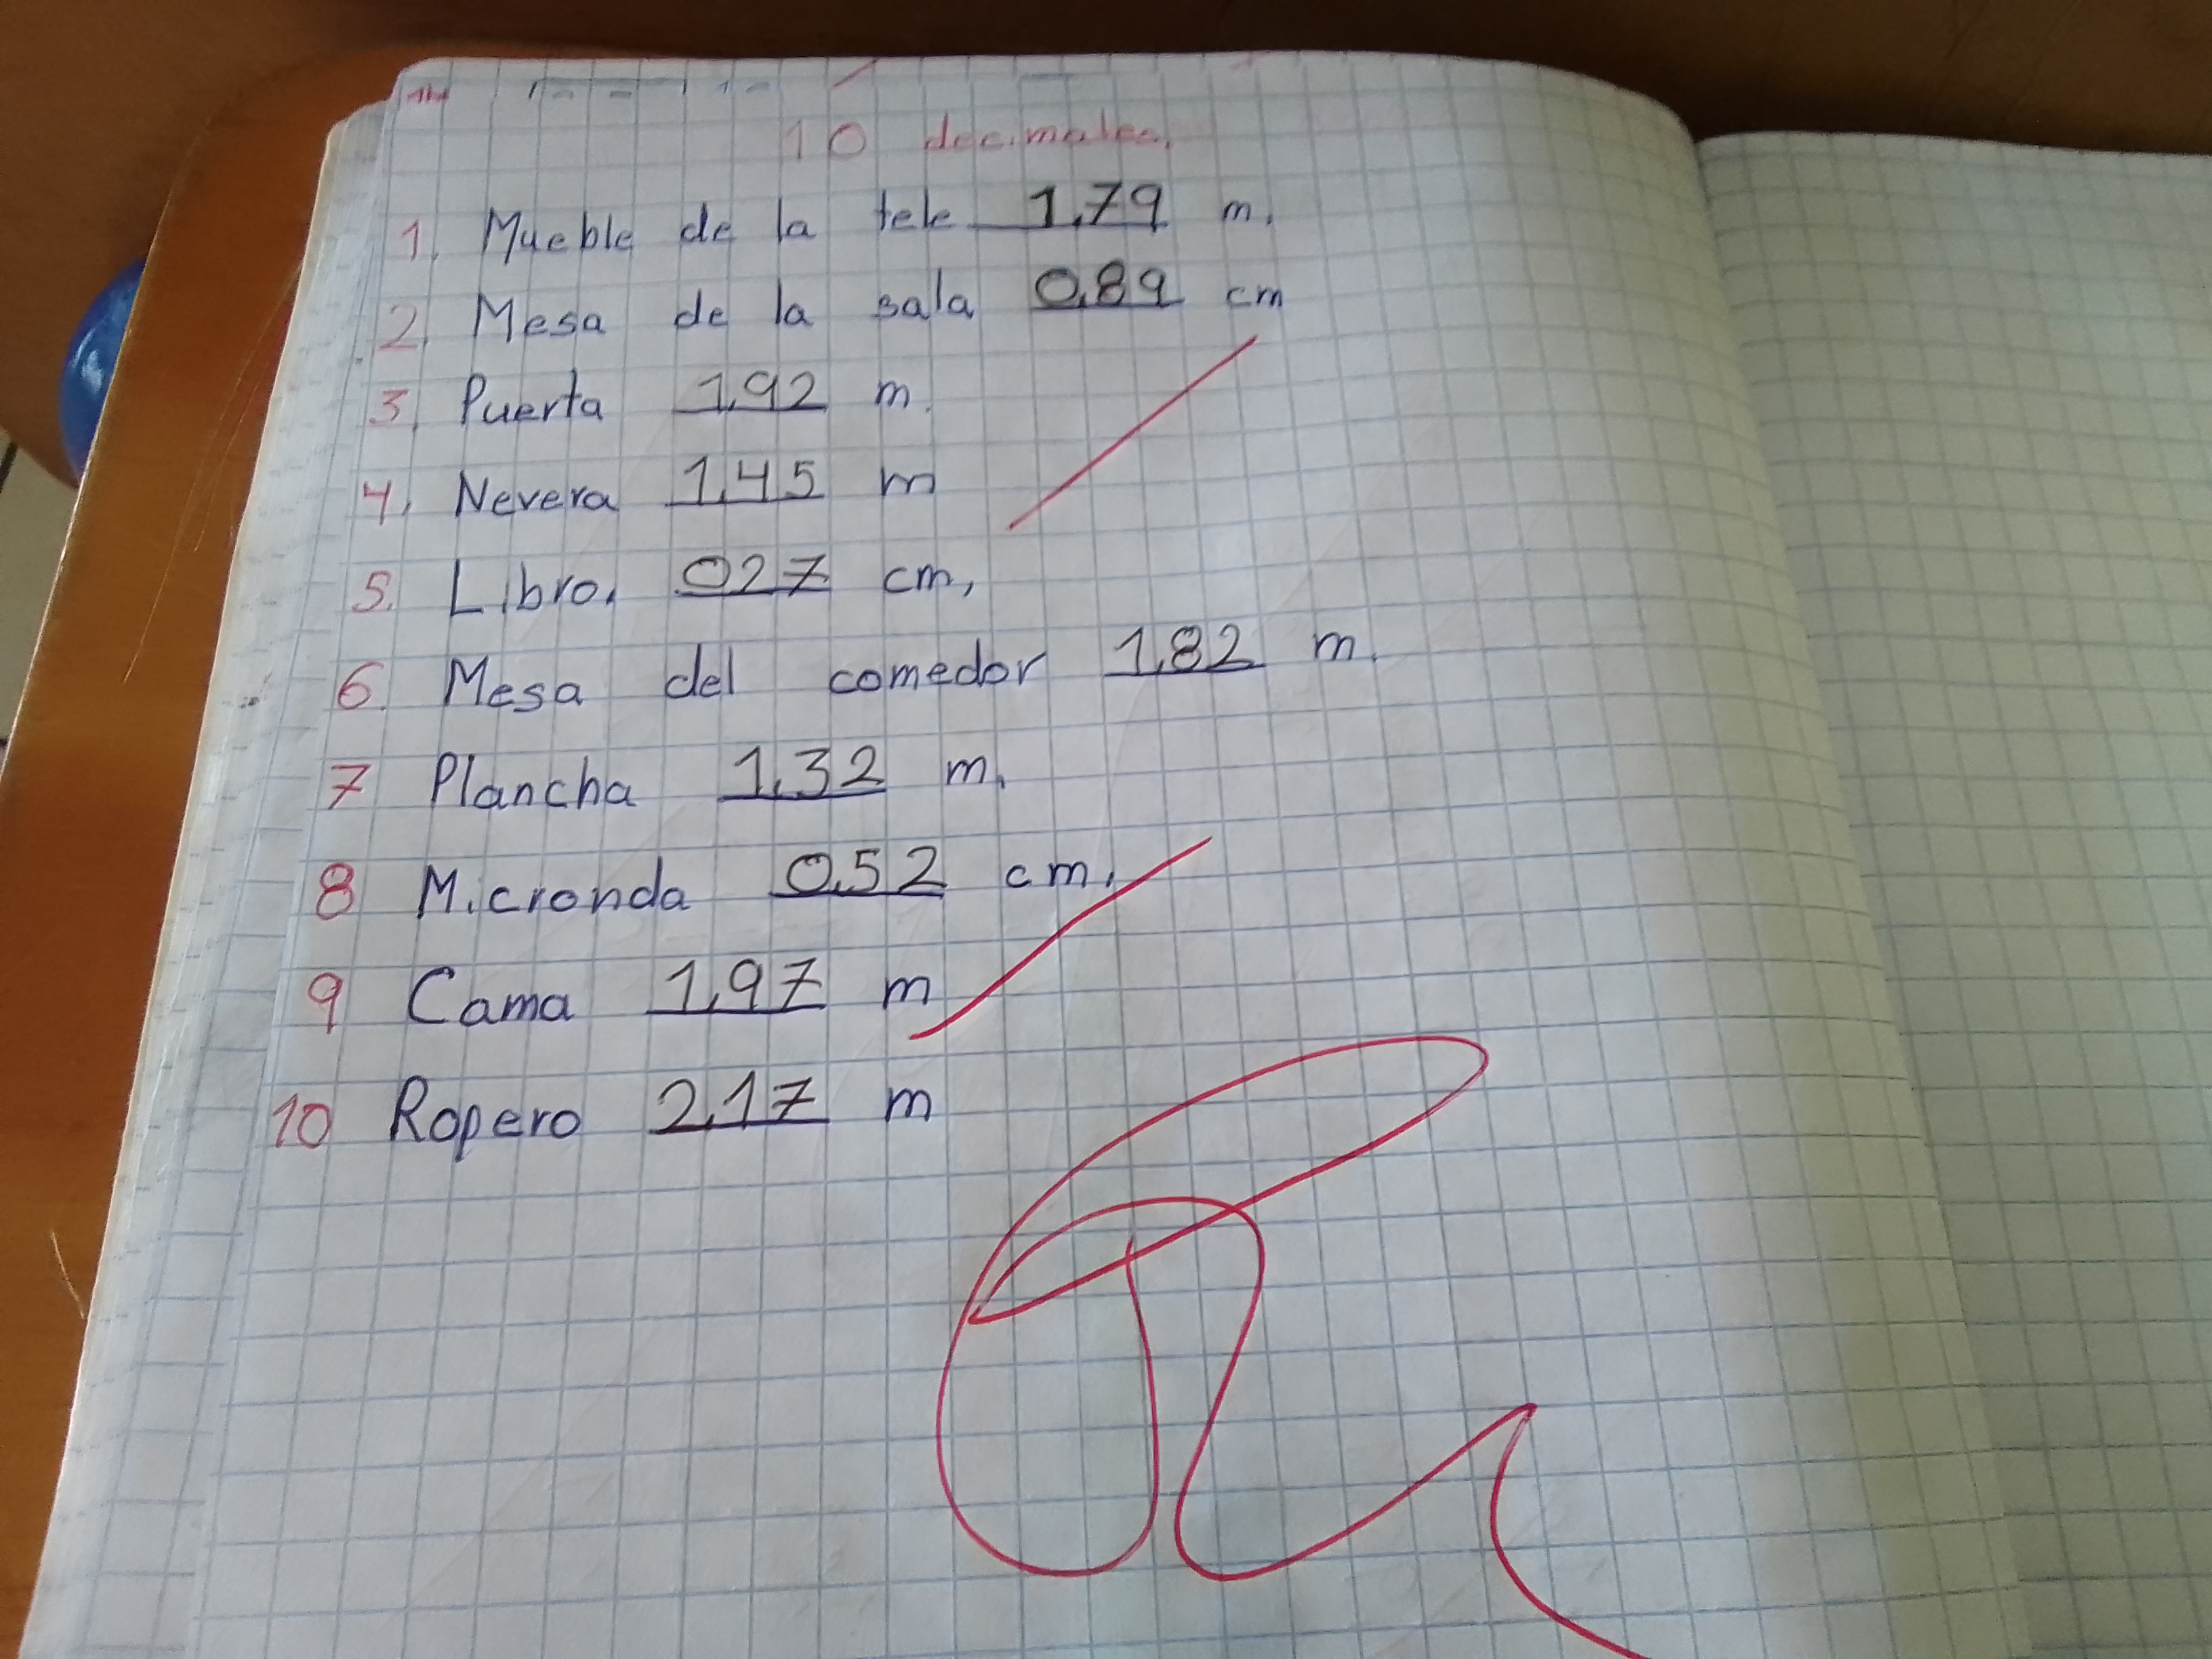 10 decimales.
1. Mueble de la tele 1,79 m.
2. Mesa de la sala 0,89 cm
3. Puerta 1,92 m.
4. Nevera 1,45 m
5. Libro. 027 cm,
6. Mesa del comedor 1,82 m.
7 Plancha 1,32 m.
8 Micronda 0,52 cm.
9 Cama 1,97 m
10 Ropero 2,17 m